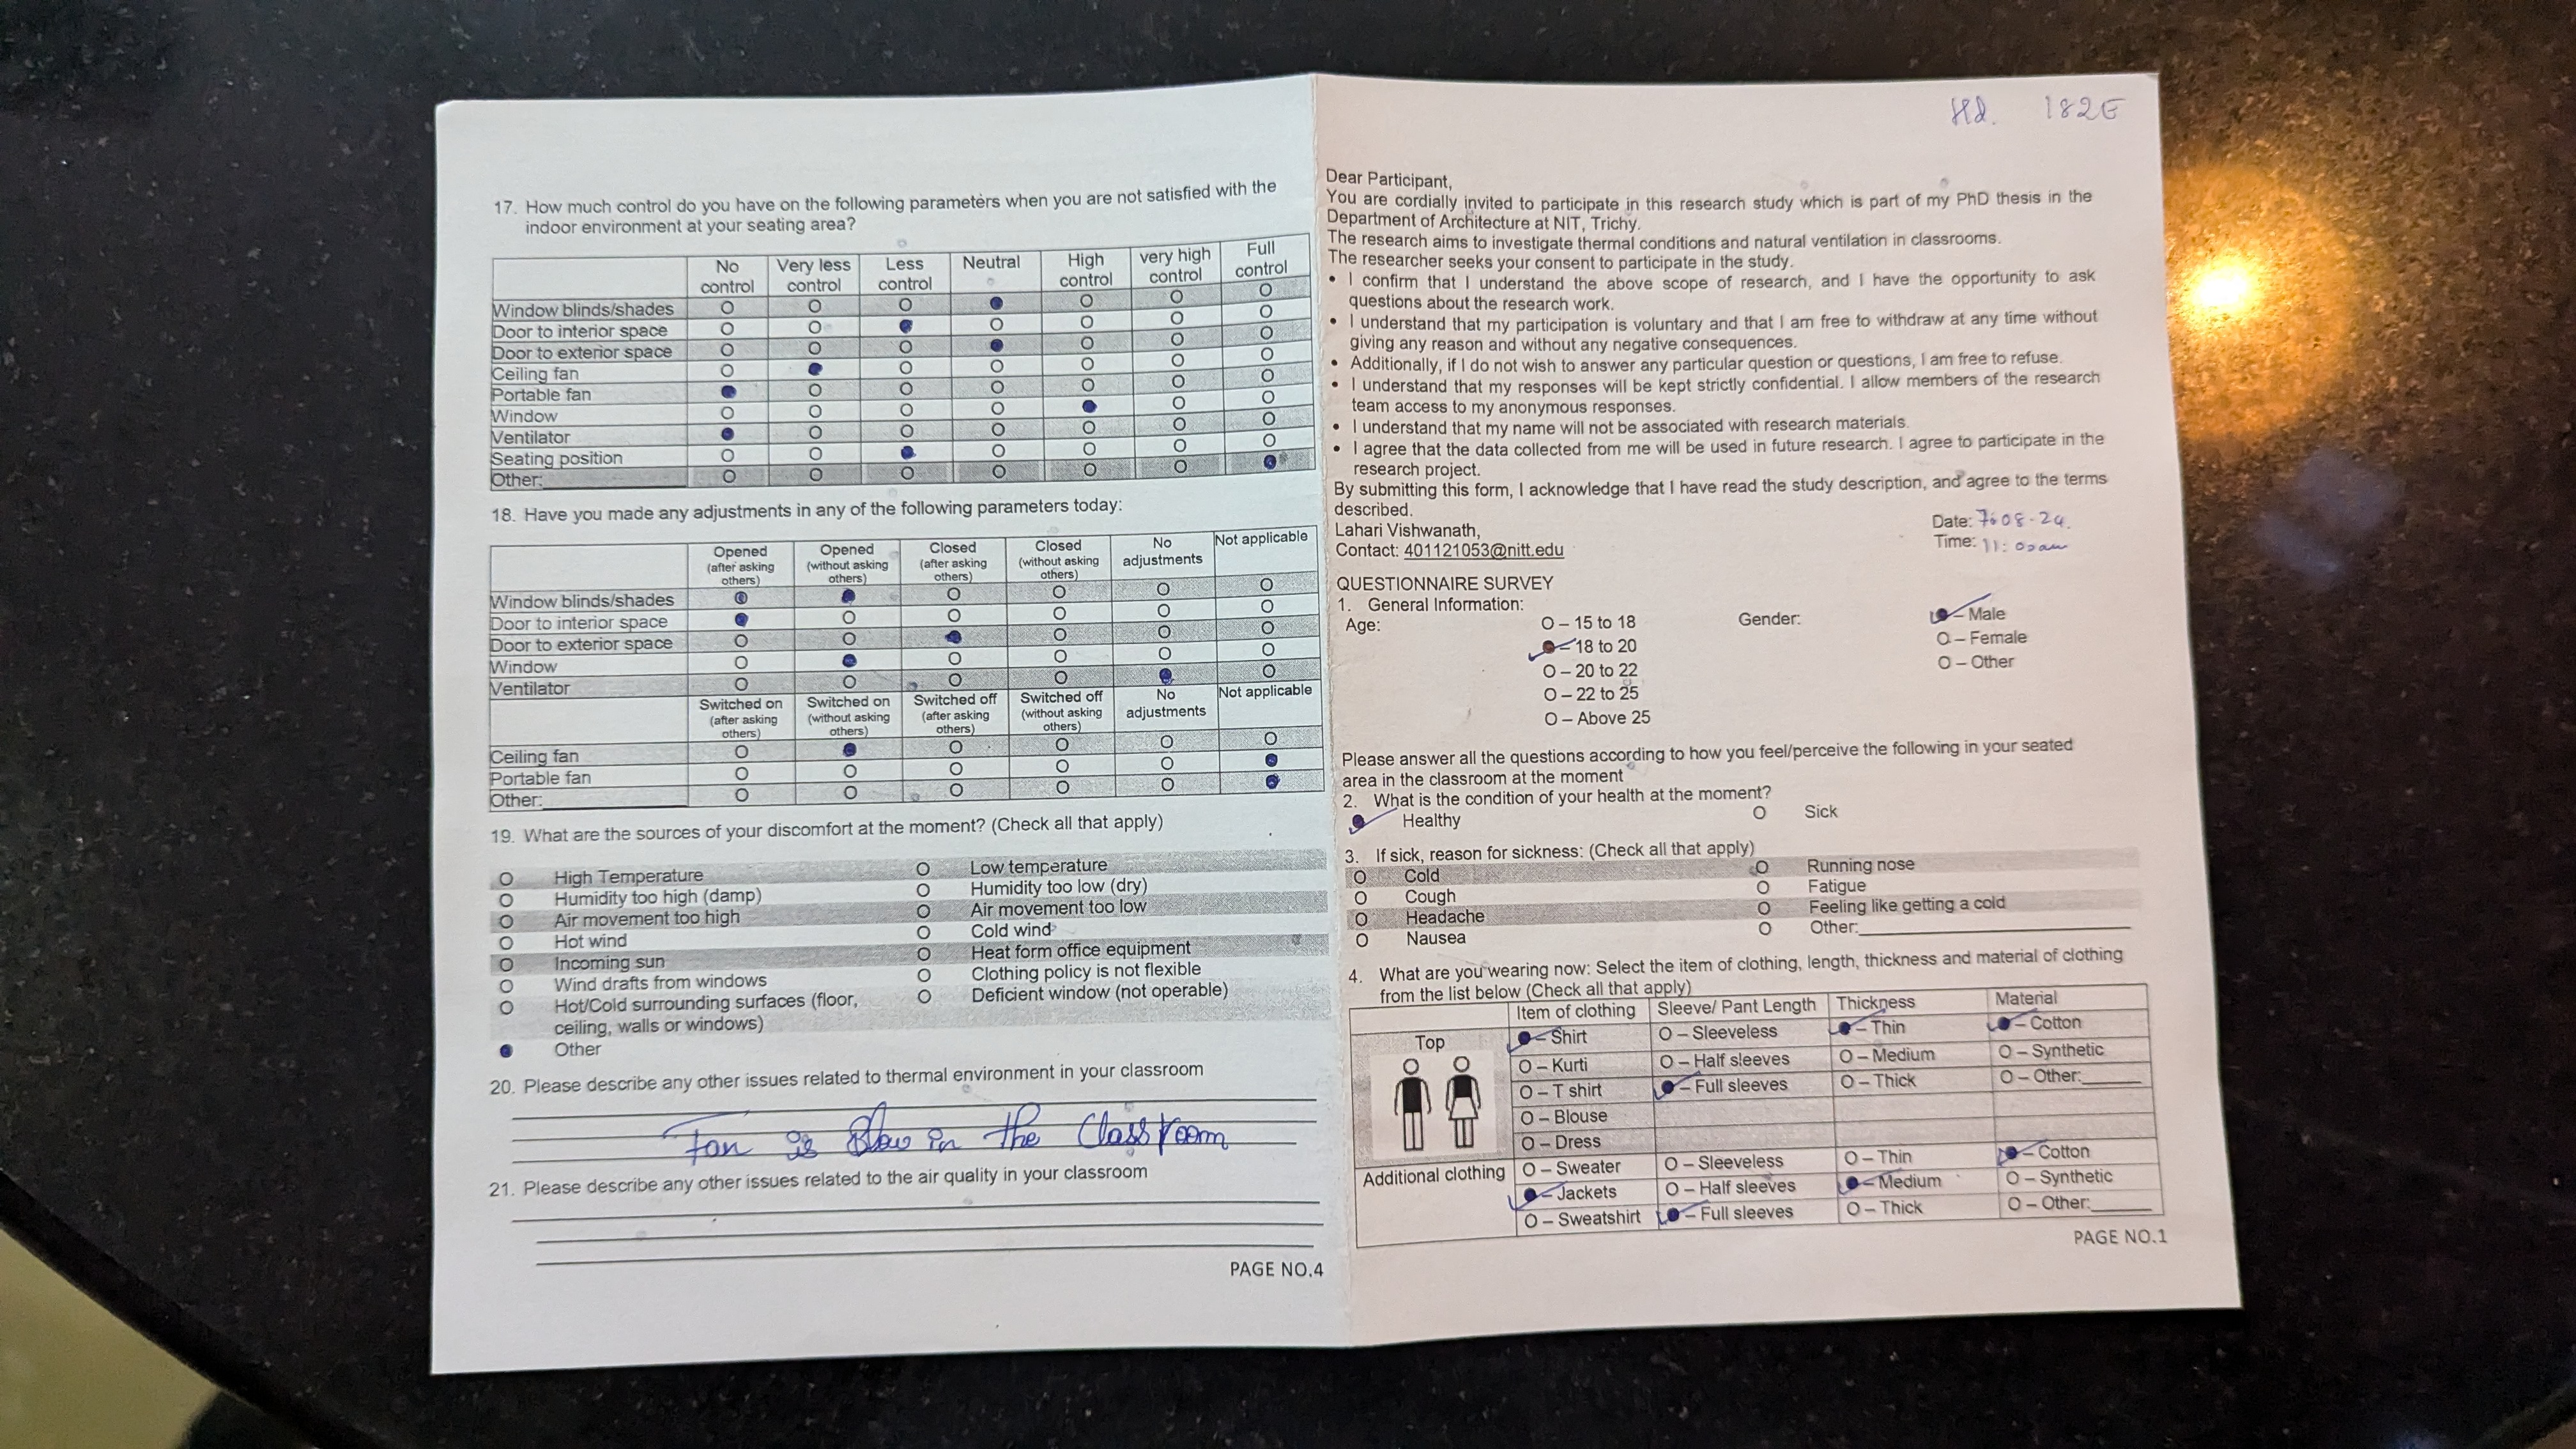 17. How much control do you have on the following parameters when you are not satisfied with the
indoor environment at your seating area?
No control Very less control Less control Neutral High control very high control Full control
Window blinds/shades O O O ● O O O
Door to interior space O O ● O O O O
Door to exterior space O O O ● O O O
Ceiling fan O ● O O O O O
Portable fan ● O O O O O O
Window O O O O ● O O
Ventilator ● O O O O O O
Seating position O O ● O O O O
Other:________ O O O O O O ●
18. Have you made any adjustments in any of the following parameters today:
Opened (after asking others) Opened (without asking others) Closed (after asking others) Closed (without asking others) No adjustments Not applicable
Window blinds/shades O ● O O O O
Door to interior space ● O O O O O
Door to exterior space O O ● O O O
Window O ● O O O O
Ventilator O O O O ● O
Switched on (after asking others) Switched on (without asking others) Switched off (after asking others) Switched off (without asking others) No adjustments Not applicable
Ceiling fan O ● O O O O
Portable fan O O O O O ●
Other:________ O O O O O ●
19. What are the sources of your discomfort at the moment? (Check all that apply)
O High Temperature O Low temperature
O Humidity too high (damp) O Humidity too low (dry)
O Air movement too high O Air movement too low
O Hot wind O Cold wind
O Incoming sun O Heat form office equipment
O Wind drafts from windows O Clothing policy is not flexible
O Hot/Cold surrounding surfaces (floor, O Deficient window (not operable)
ceiling, walls or windows)
● Other
20. Please describe any other issues related to thermal environment in your classroom
Fan is Slow in the Classroom
21. Please describe any other issues related to the air quality in your classroom
PAGE NO.4
182E
Dear Participant,
You are cordially invited to participate in this research study which is part of my PhD thesis in the
Department of Architecture at NIT, Trichy.
The research aims to investigate thermal conditions and natural ventilation in classrooms.
The researcher seeks your consent to participate in the study.
• I confirm that I understand the above scope of research, and I have the opportunity to ask
questions about the research work.
• I understand that my participation is voluntary and that I am free to withdraw at any time without
giving any reason and without any negative consequences.
• Additionally, if I do not wish to answer any particular question or questions, I am free to refuse.
• I understand that my responses will be kept strictly confidential. I allow members of the research
team access to my anonymous responses.
• I understand that my name will not be associated with research materials.
• I agree that the data collected from me will be used in future research. I agree to participate in the
research project.
By submitting this form, I acknowledge that I have read the study description, and agree to the terms
described.
Lahari Vishwanath,
Contact: 401121053@nitt.edu
Date: 7-08-24.
Time: 11:00am
QUESTIONNAIRE SURVEY
1. General Information:
Age: O – 15 to 18 Gender: ● – Male
● – 18 to 20 O – Female
O – 20 to 22 O – Other
O – 22 to 25
O – Above 25
Please answer all the questions according to how you feel/perceive the following in your seated
area in the classroom at the moment
2. What is the condition of your health at the moment?
● Healthy O Sick
3. If sick, reason for sickness: (Check all that apply)
O Cold O Running nose
O Cough O Fatigue
O Headache O Feeling like getting a cold
O Nausea O Other:________
4. What are you wearing now: Select the item of clothing, length, thickness and material of clothing
from the list below (Check all that apply)
Item of clothing Sleeve/ Pant Length Thickness Material
Top ● – Shirt O – Sleeveless ● – Thin ● – Cotton
O – Kurti O – Half sleeves O – Medium O – Synthetic
O – T shirt ● – Full sleeves O – Thick O – Other:______
O – Blouse
O – Dress
Additional clothing O – Sweater O – Sleeveless O – Thin ● – Cotton
● – Jackets O – Half sleeves ● – Medium O – Synthetic
O – Sweatshirt ● – Full sleeves O – Thick O – Other:______
PAGE NO.1